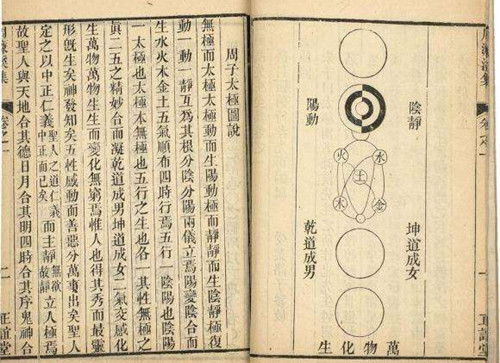 周濂溪集
卷之一
正誼堂
陰靜
陽動
火
水
土
木
金
坤道成女
乾道成男
萬物化生
周子太極圖說
無極而太極太極動而生陽動極而靜靜而生陰靜極復
動一動一靜互爲其根分陰分陽兩儀立焉陽變陰合而
生水火木金土五氣順布四時行焉五行一陰陽也陰陽
一太極也太極本無極也五行之生也各一其性無極之
眞二五之精妙合而凝乾道成男坤道成女二氣交感化
生萬物萬物生生而變化無窮焉惟人也得其秀而最靈
形既生矣神發知矣五性感動而善惡分萬事出矣聖人
定之以中正仁義聖人之道仁義中正而已矣而主靜無欲故靜立人極焉
故聖人與天地合其德日月合其明四時合其序鬼神合
周濂溪集
卷之一
正誼堂